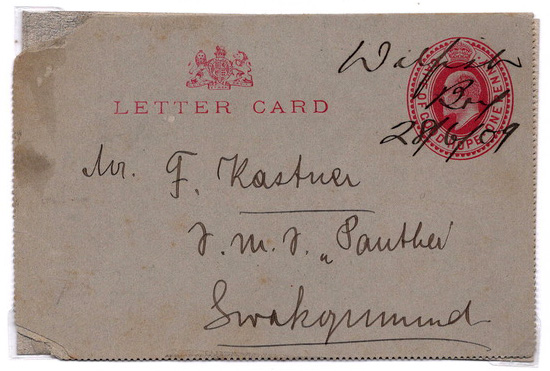 Walfish
Bay
28/6/09
LETTER CARD
Mr. F. Kastner
S. M. S. „Panther
Swakopmund
ONE PENNY